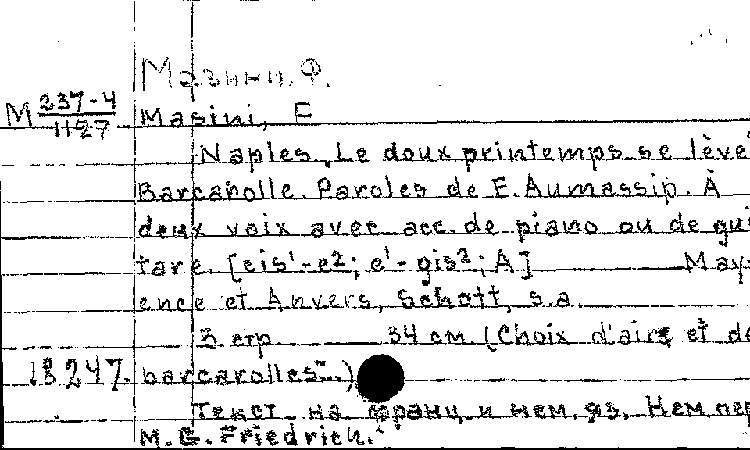 Мазини. Ф.
М 237-4/1127 Masini, F
Naples. Le doux printemps se lève
Barcarolle. Paroles de E. Aumassip. À
deux voix avec acc. de piano ou de gui
tare. [eis¹-e²; e¹-gis²; A] May
ence et Anvers, Schott, s.a.
3 стр. 34 см. (Choix d'airs et de
18247. barcarolles...)
Текст на франц. и нем. яз. Нем. пер
M. G. Friedrich.